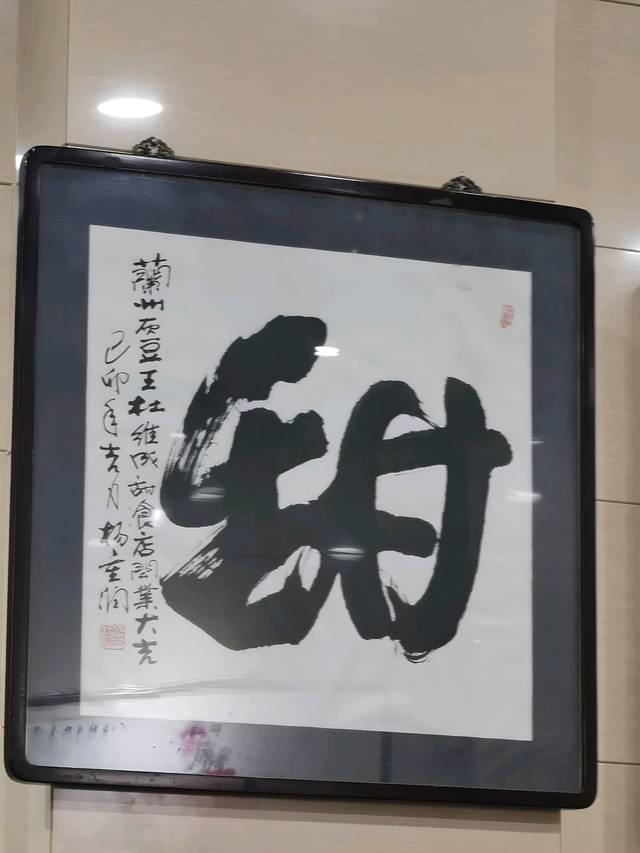 甜
蘭州灰豆王杜維成甜食店開業大吉
己卯年吉月杨重润